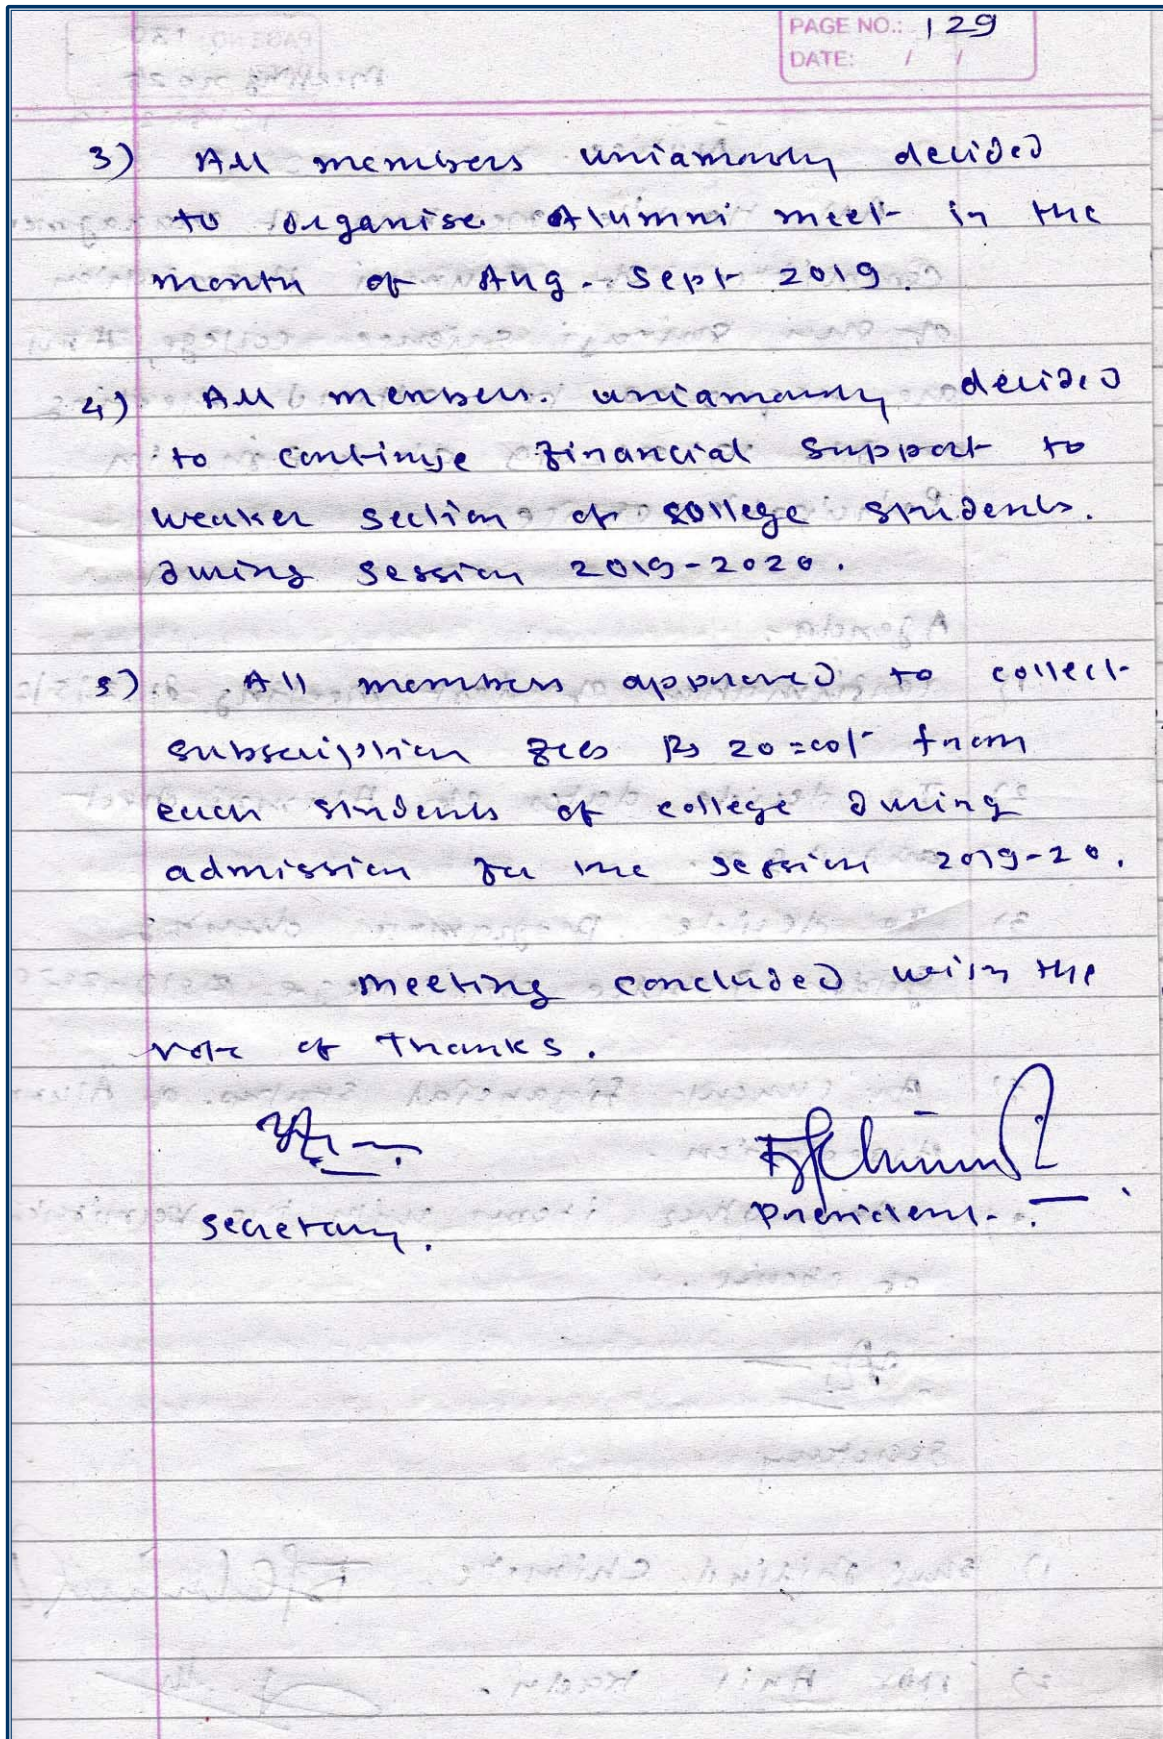 PAGE NO.: 129
DATE: / /
3) All members uniamously decided
to organise Alumni meet in the
month of Aug. Sept 2019.
4) All members. uniamously decided
to continue financial support to
weaker section of college students.
during session 2019-2020.
5) All members approved to collect
subscription fees Rs 20=00/- from
each students of college during
admission for the session 2019-20.
meeting concluded with the
vote of thanks.
secretary.
president.